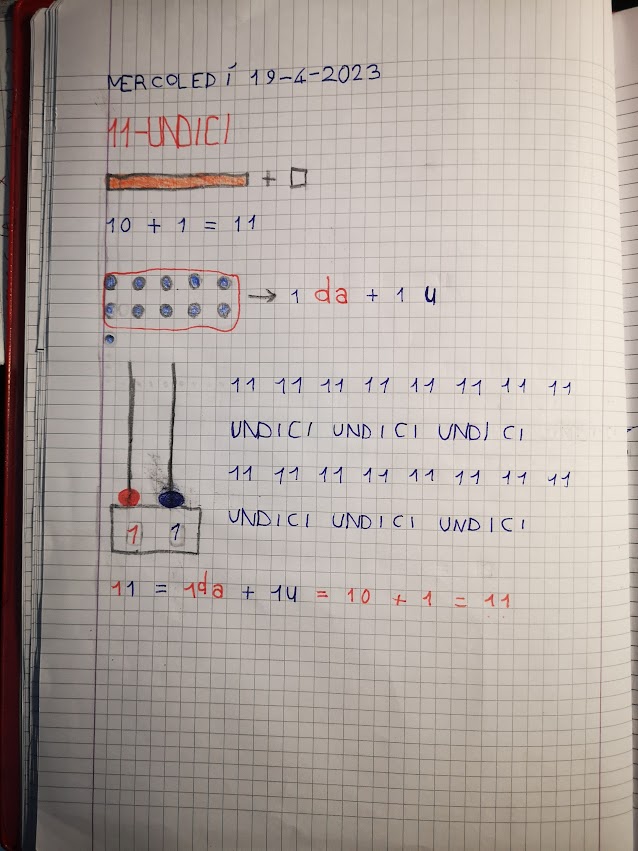 MERCOLEDÍ 19-4-2023
11-UNDICI
+
10 + 1 = 11
→ 1 da + 1 u
11 11 11 11 11 11 11 11
UNDICI UNDICI UNDICI
11 11 11 11 11 11 11 11
UNDICI UNDICI UNDICI
1 1
11 = 1da + 1u = 10 + 1 = 11